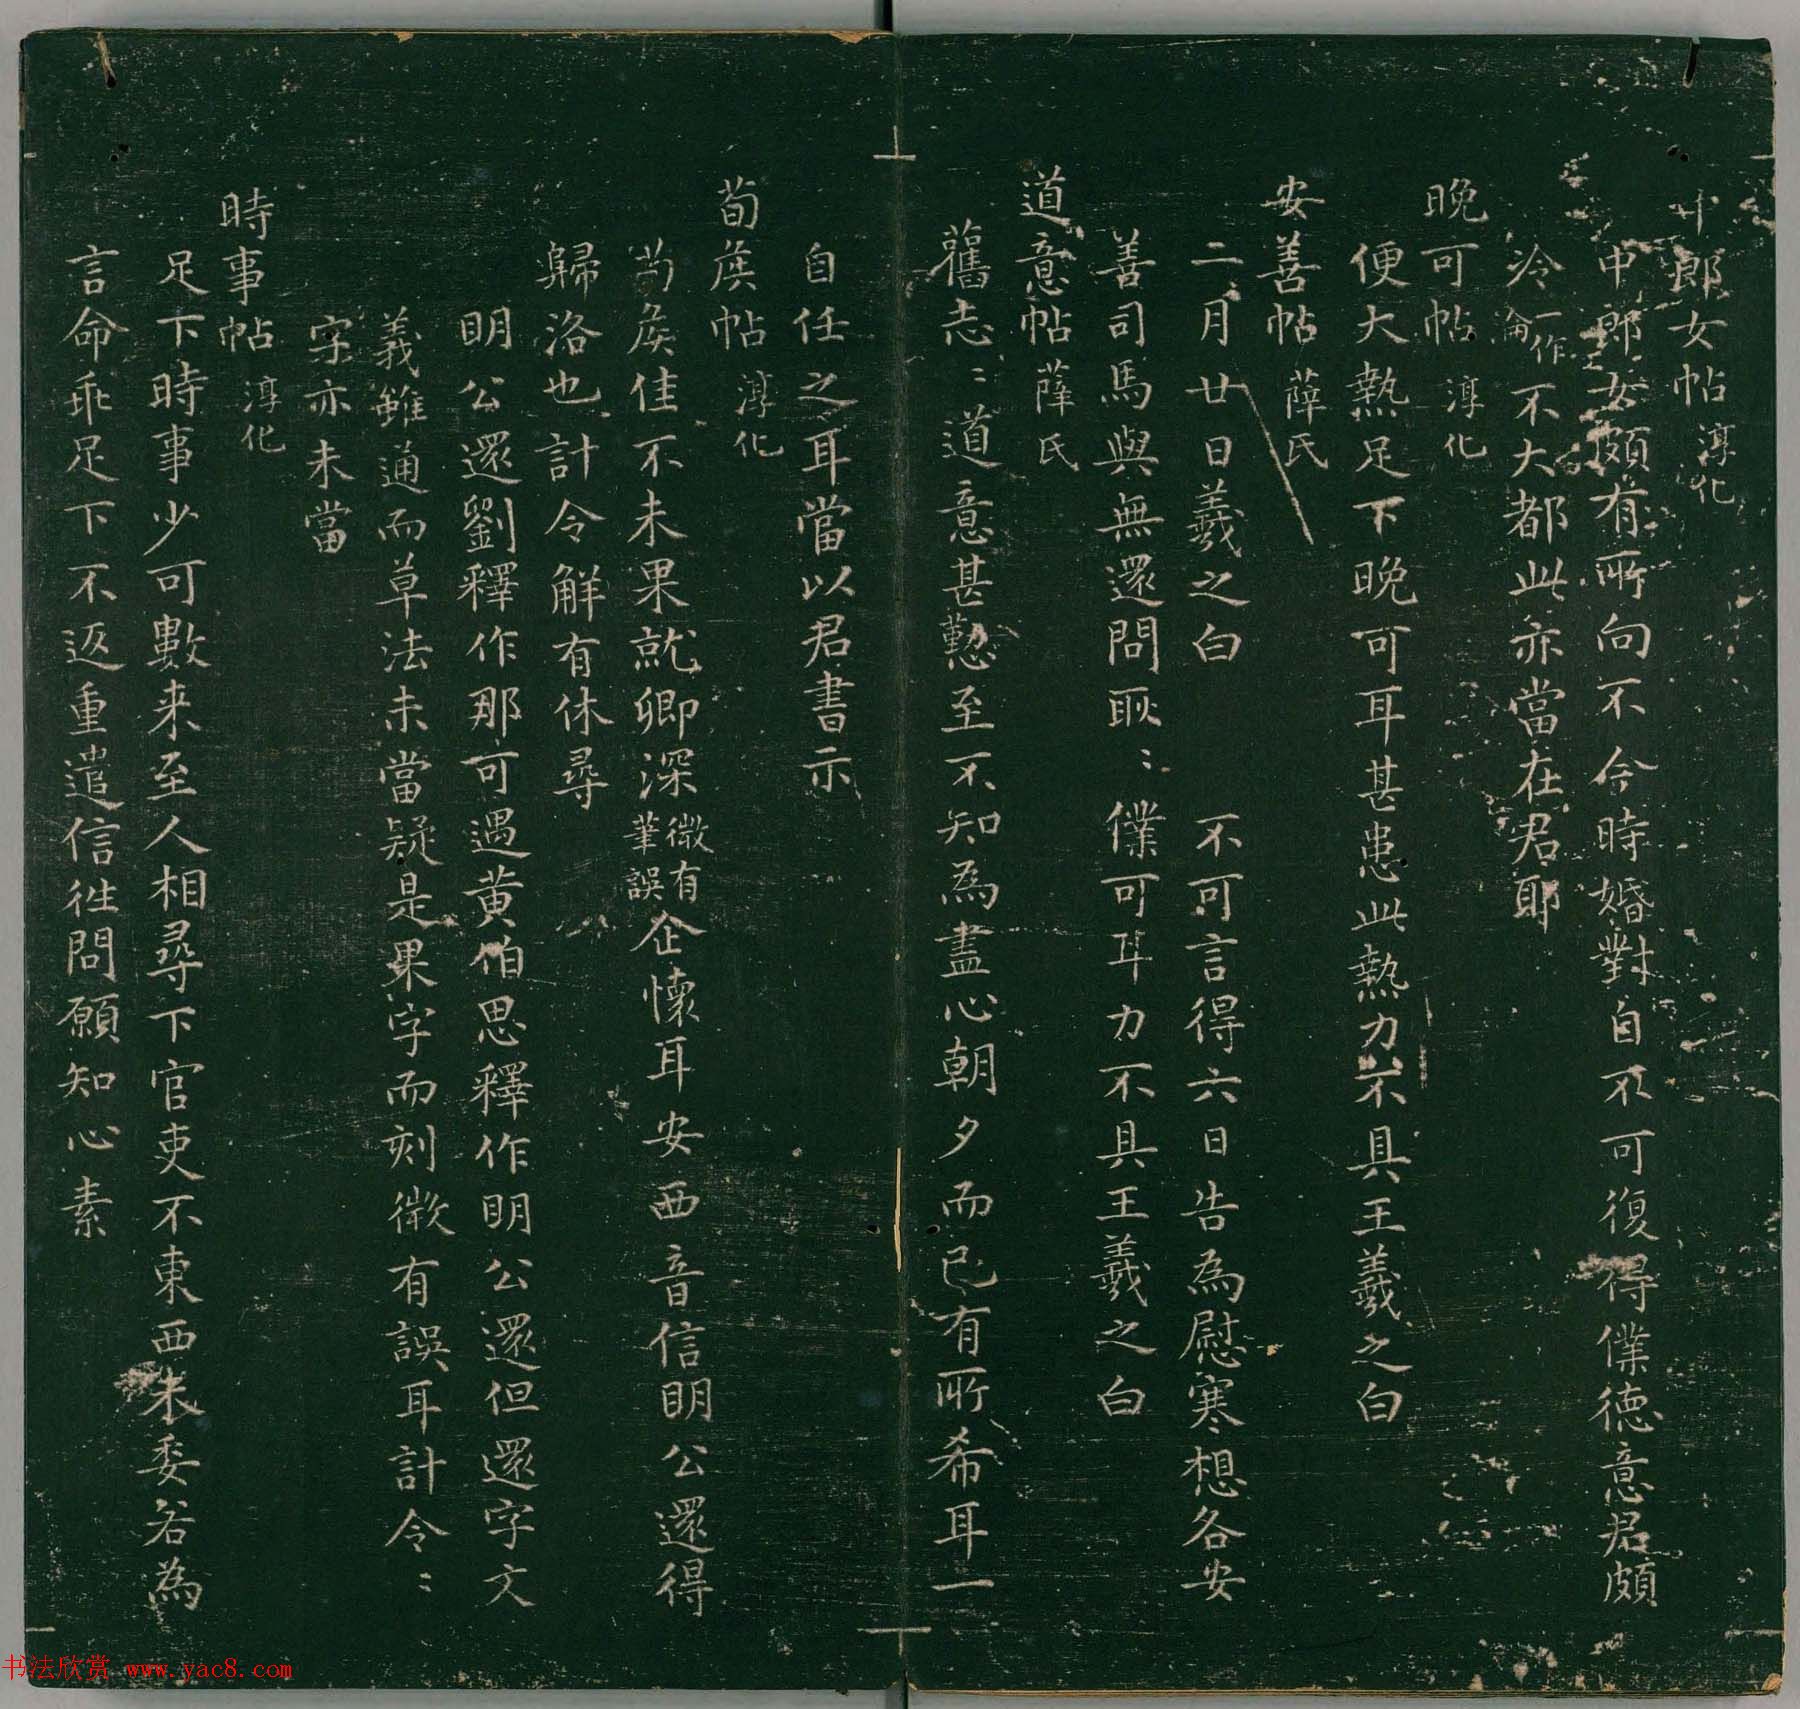 中郎女帖 淳化
中郎女頗有所向不今時婚對自不可復得僕德意君頗
冷一作淪不大都此亦當在君耶
晚可帖 淳化
便大熱足下晚可耳甚患此熱力不具王羲之白
安善帖 薛氏
二月廿日羲之白 不可言得六日告為慰寒想各安
善司馬與無還問耿〻僕可耳力不具王羲之白
道意帖 薛氏
舊志〻道意甚懃至不知為盡心朝夕而已有所希耳一
自任之耳當以君書示
荀侯帖 淳化
荀侯佳不未果就卿深微有筆誤企懷耳安西音信明公還得
歸洛也計令解有休尋
明公還劉釋作那可遇黃伯思釋作明公還但還字文
義雖通而草法未當疑是果字而刻微有誤耳計令〻
字亦未當
時事帖 淳化
足下時事少可數来至人相尋下官吏不東西未委若為
言命乖足下不返重遣信往問願知心素
书法欣赏 www.yac8.com